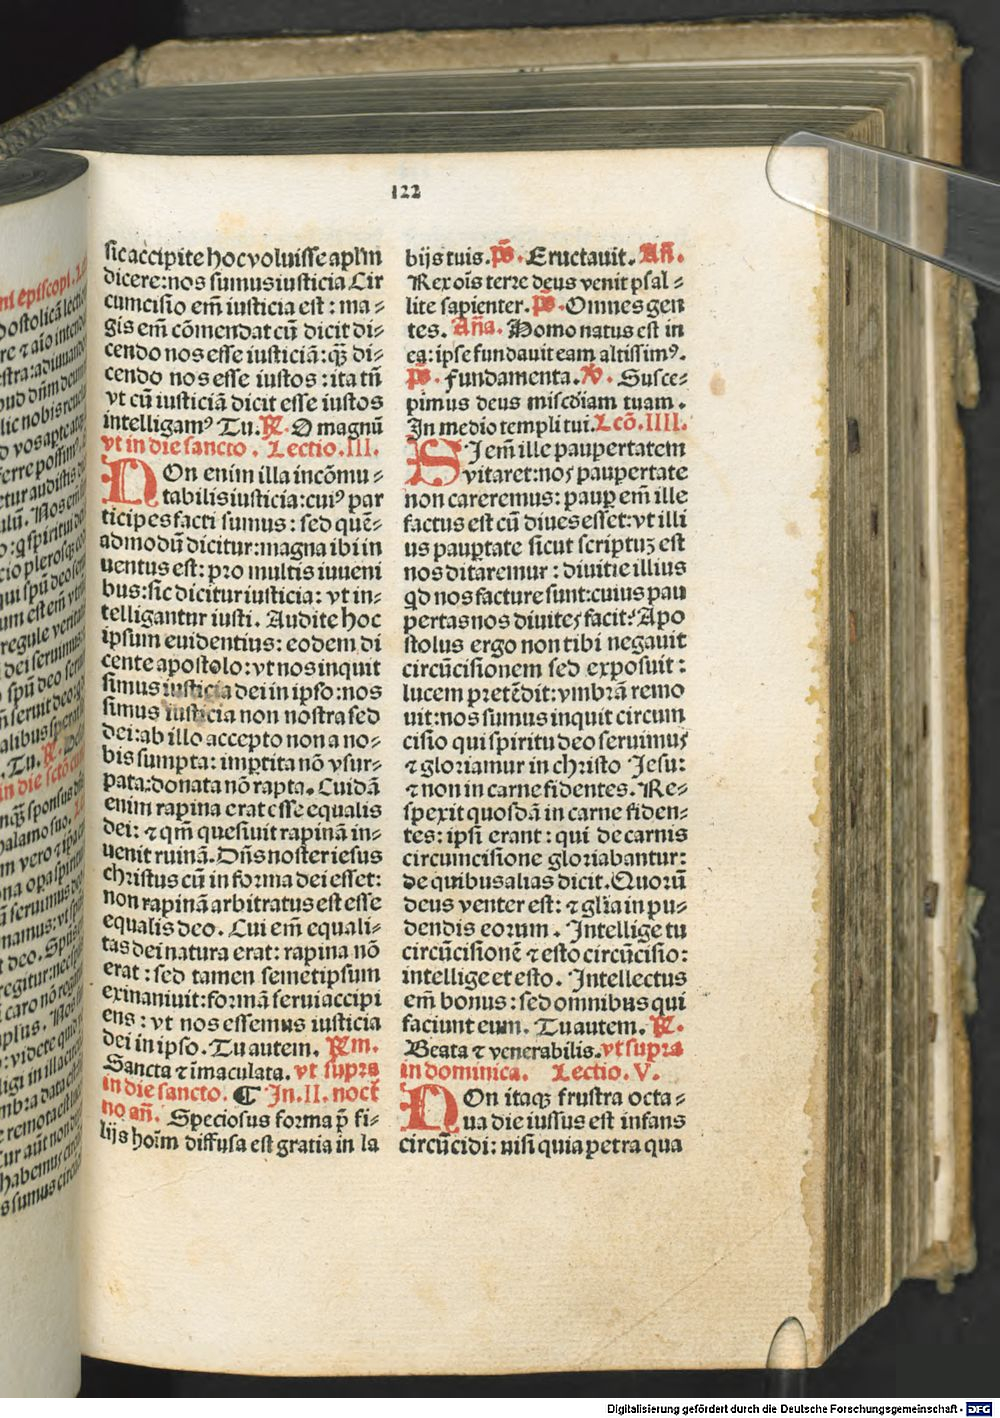 122
sic accipite hoc voluisse apl'm
dicere: nos sumus iusticia Cir
cumcisio em̃ iusticia est: ma⸗
gis em̃ cōmendat cū dicit di⸗
cendo nos esse iusticiā: qꝫ di⸗
cendo nos esse iustos: ita tñ
vt cū iusticiā dicit esse iustos
intelligamꝰ Tu. ℟. O magnū
vt in die sancto. Lectio. III.
NOn enim illa incōmu⸗
tabilis iusticia: cuiꝰ par
ticipes facti sumus: sed quē⸗
admodū dicitur: magna ibi in
uentus est: pro multis iuueni
bus: sic dicitur iusticia: vt in⸗
telligantur iusti. Audite hoc
ipsum euidentius: eodem di
cente apostolo: vt nos inquit
simus iusticia dei in ipso: nos
simus iusticia non nostra sed
dei: ab illo accepto non a no⸗
bis sumpta: impertita nō vsur⸗
pata: donata nō rapta. Cuidā
enim rapina erat esse equalis
dei: ⁊ qm̄ quesiuit rapinā in⸗
uenit ruinā. Dñs noster iesus
christus cū in forma dei esset:
non rapinā arbitratus est esse
equalis deo. Cui em̃ equali⸗
tas dei natura erat: rapina nō
erat: sed tamen semetipsum
exinaniuit: formā serui accipi
ens: vt nos essemus iusticia
dei in ipso. Tu autem. ℟m.
Sancta ⁊ imaculata. vt supra
in die sancto. ¶ In. II. noct
no añ. Speciosus forma p̄ fi⸗
lijs hoīm diffusa est gratia in la
bijs tuis. p̄s. Eructauit. Añ.
Rex oīs terre deus venit psal⸗
lite sapienter. p̄s. Omnes gen
tes. Aña. Homo natus est in
ea: ipse fundauit eam altissimꝰ.
ps. fundamenta. ℣. Susce⸗
pimus deus miscd̄iam tuam.
In medio templi tui. Lcō. IIII.
SI em̃ ille paupertatem
vitaret: nos paupertate
non careremus: paup em̃ ille
factus est cū diues esset: vt illi
us paupertate sicut scriptuꝫ est
nos ditaremur: diuitie illius
qd nos facture sunt: cuius pau
pertas nos diuites facit? Apo
stolus ergo non tibi negauit
circūcisionem sed exposuit:
lucem pretēdit: vmbrā remo
uit: nos sumus inquit circum
cisio qui spiritu deo seruimus
⁊ gloriamur in christo Jesu:
⁊ non in carne fidentes. Re⸗
spexit quosdā in carne fiden⸗
tes: ipsi erant: qui de carnis
circumcisione gloriabantur:
de quibus alias dicit. Quorū
deus venter est: ⁊ gl'ia in pu⸗
dendis eorum. Intellige tu
circūcisionē ⁊ esto circūcisio:
intellige et esto. Intellectus
em̃ bonus: sed omnibus qui
faciunt eum. Tu autem. ℟.
Beata ⁊ venerabilis. vt supra
in dominica. Lectio. V.
NOn itaqꝫ frustra octa⸗
ua die iussus est infans
circūcidi: nisi quia petra qua
Digitalisierung gefördert durch die Deutsche Forschungsgemeinschaft - DFG